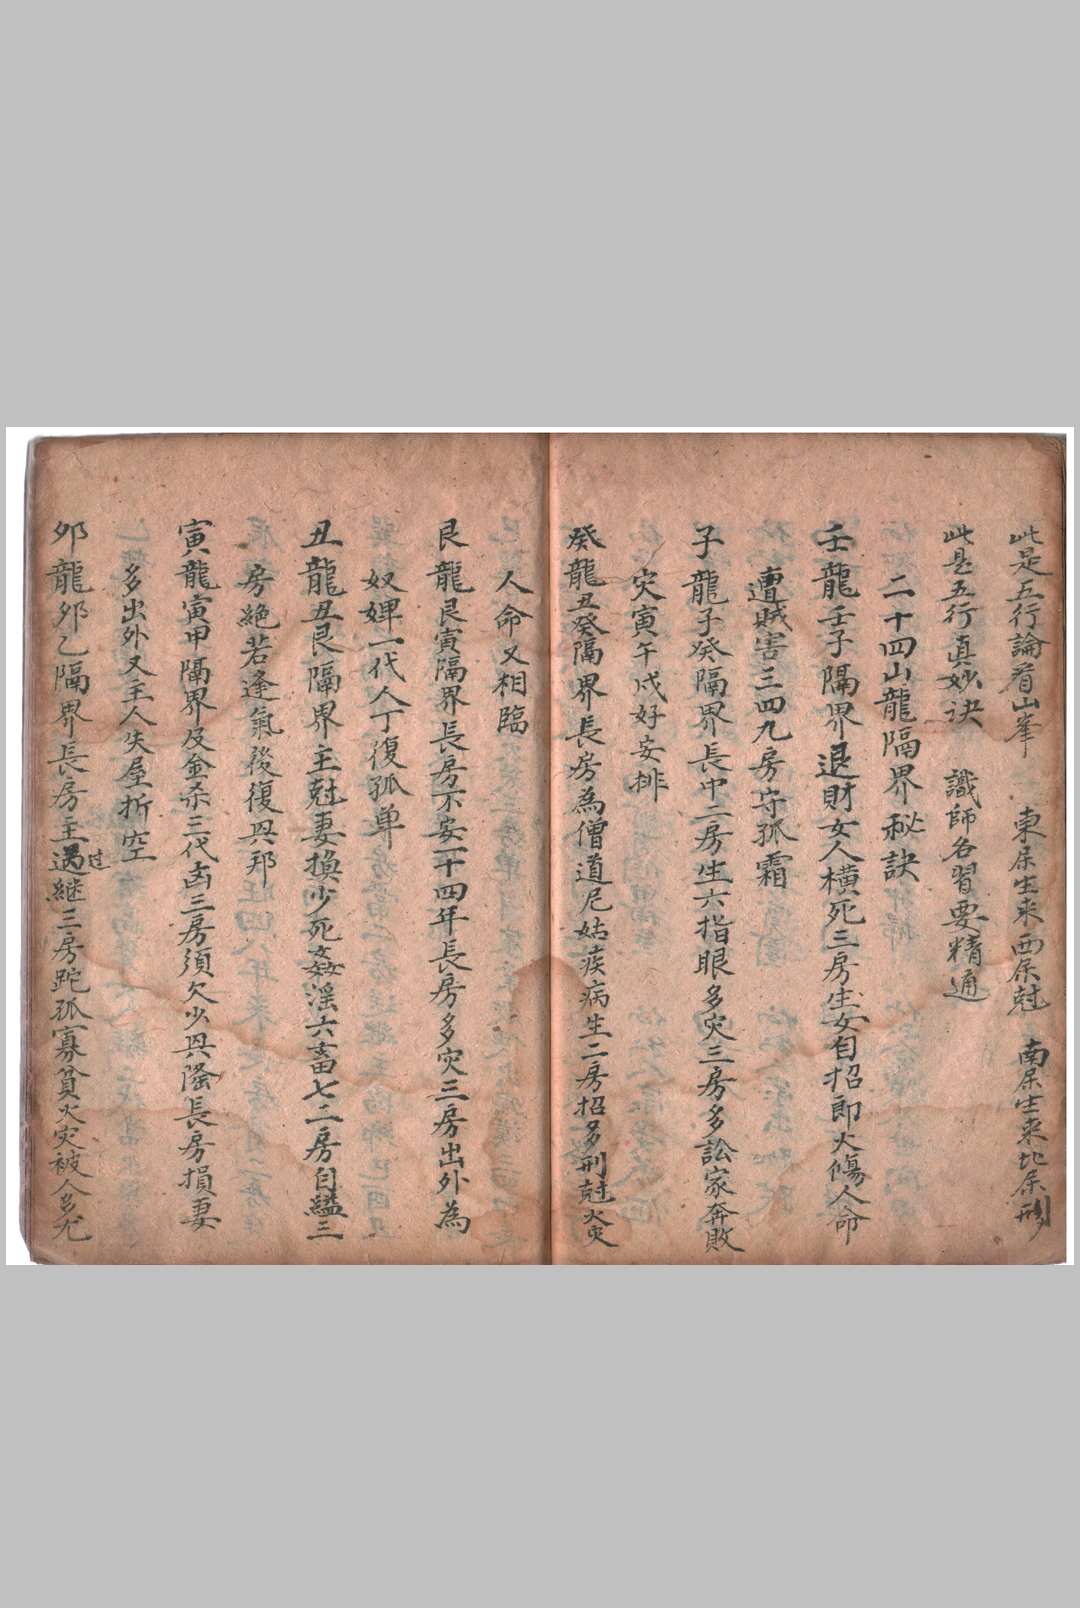 此是五行論看山峯 東屈生来西屈尅 南屈生来北屈刑
此是五行真妙诀 識師名習要精通
二十四山龍隔界秘訣
壬龍壬子隔界退財女人橫死三房生女自招郎火傷人命
遭賊害三四九房守孤霜
子龍子癸隔界長中二房生六指眼多灾三房多訟家奔敗
灾寅午戌好安排
癸龍丑癸隔界長房為僧道尼姑疾病生二房招多刑尅火灾
人命又相臨
艮龍艮寅隔界長房不安二十四年長房多灾三房出外為
奴婢一代人丁復孤单
丑龍丑艮隔界主尅妻換少死姦淫六畜七二房自縊三
房絶若逢氣後復興邦
寅龍寅甲隔界及金杀三代卤三房須欠少興隆長房損妻
多出外又主人失屋折空
夘龍夘乙隔界長房主過过継三房跎孤寡貧火灾被人多尤